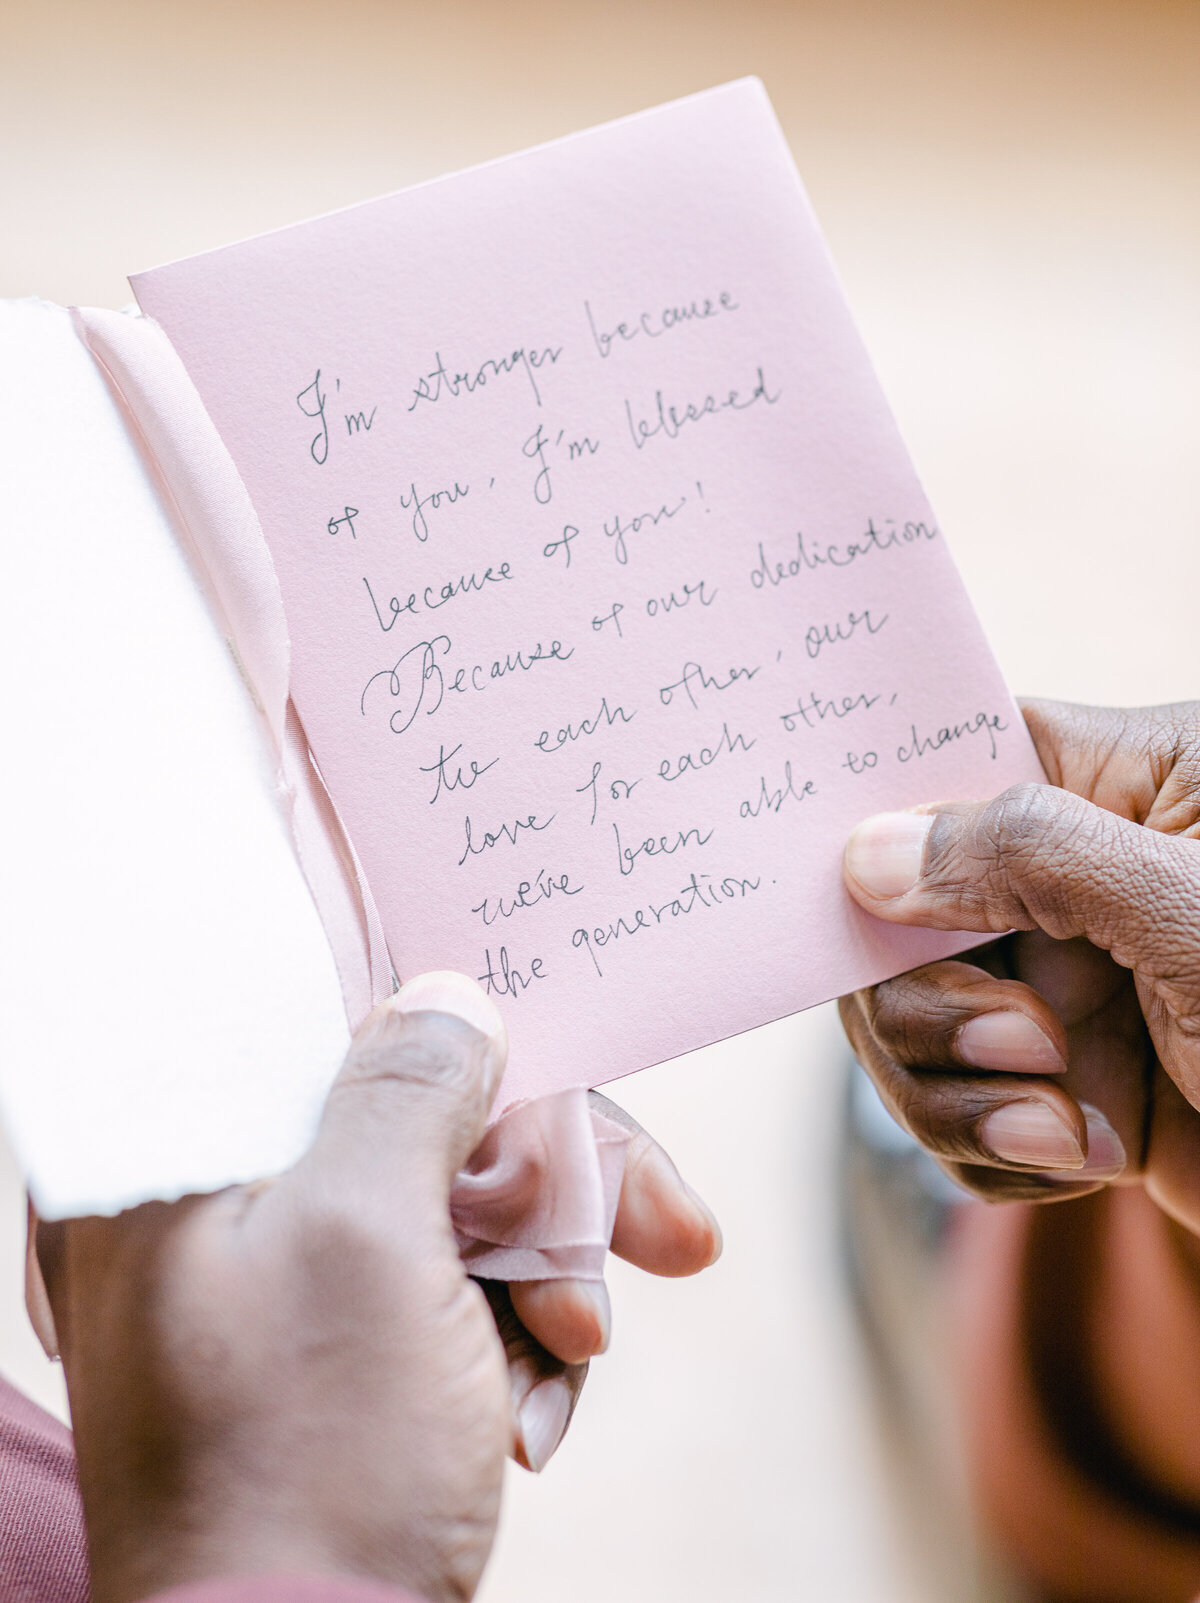 I'm stronger because
of you, I'm blessed
because of you!
Because of our dedication
to each other, our
love for each other,
we've been able to change
the generation.